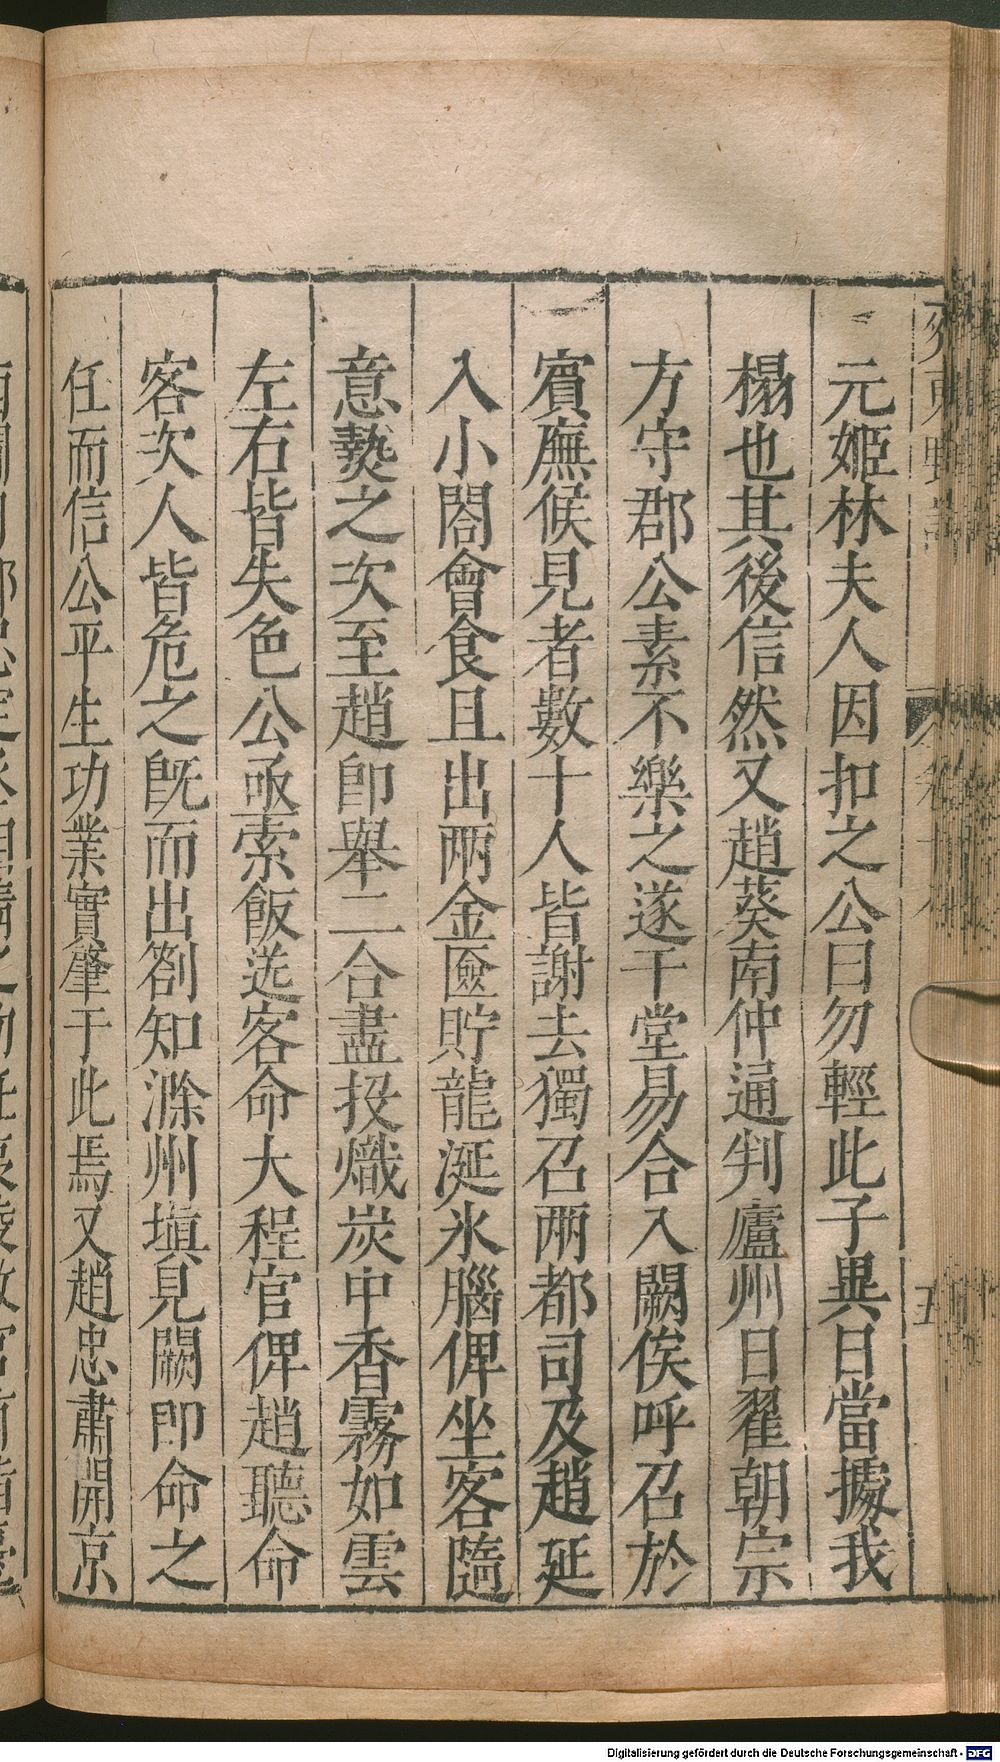 元姬林夫人因扣之公曰勿輕此子異日當據我
榻也其後信然又趙葵南仲通判廬州日翟朝宗
方守郡公素不樂之遂干堂易合入闕俟呼召於
賓廡候見者數十人皆謝去獨召兩都司及趙延
入小閤會食且出兩金匳貯龍涎氷腦俾坐客隨
意爇之次至趙卽舉二合盡投熾炭中香霧如雲
左右皆失色公亟索飯送客命大程官俾趙聽命
客次人皆危之旣而出劄知滁州塡見闕卽命之
任而信公平生功業實肇于此焉又趙忠肅開京
Digitalisierung gefördert durch die Deutsche Forschungsgemeinschaft - DFG